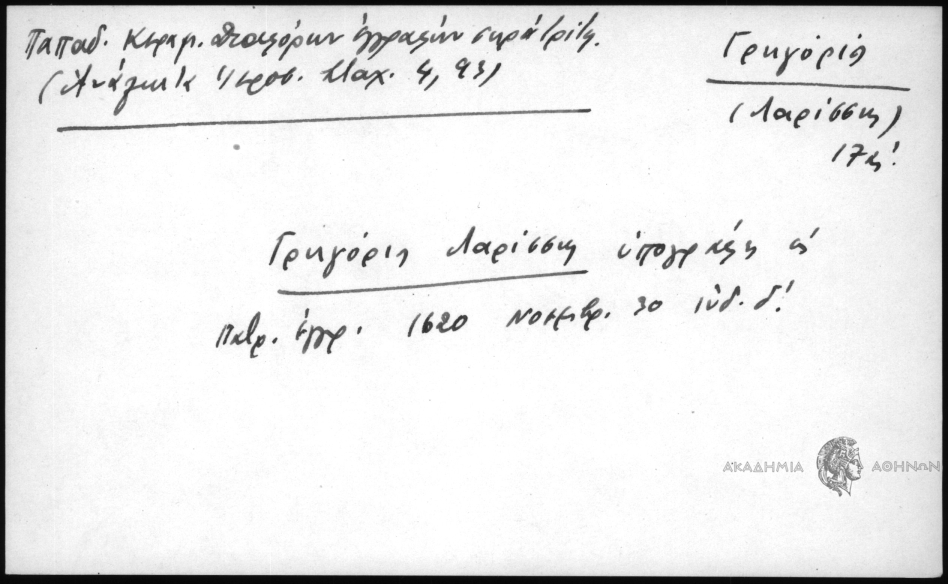 Παπαδ. Κεραμ. διαφόρων ἐγγράφων
(Ἀνάλεκτα Ἱεροσ. Σταχ. 4, 93)
Γρηγόριος
(Λαρίσσης)
17 αἰ.
Γρηγόριος Λαρίσσης ὑπογράφει εἰς
Πατρ. ἔγγρ. 1620 Νοεμβρ. 30 ἰνδ. δ!
ΑΚΑΔΗΜΙΑ ΑΘΗΝΩΝ